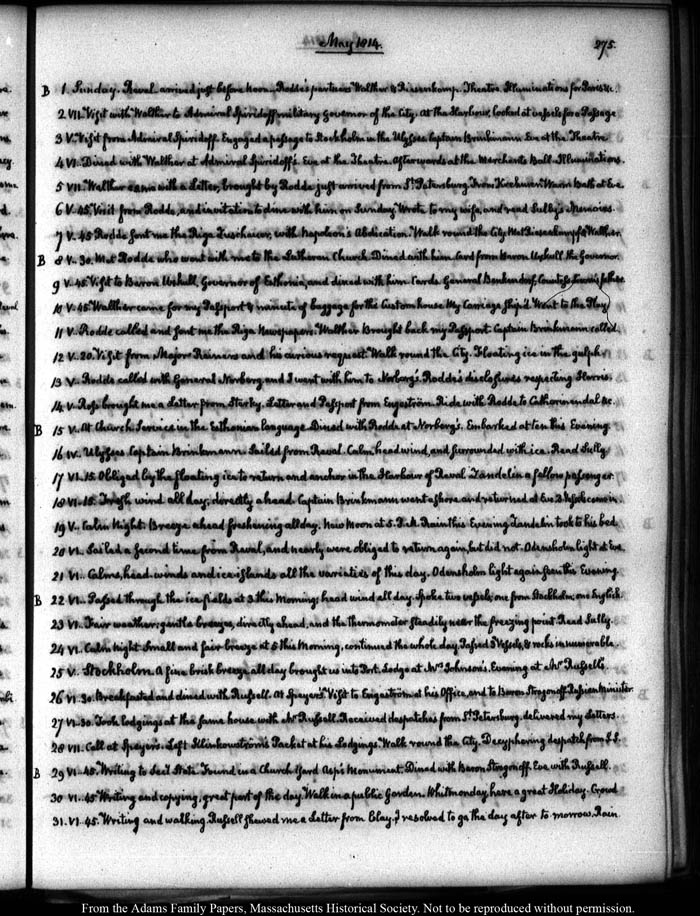 May 1814.
275.
B 1. Sunday. Reval arrived just before noon. Rodde's partners Walther & Riesenkamp. Theatre. Illuminations for Paris &c.
2 VII. Visit with Walther to Admiral Spiridoff military Governor of the City. At the Harbour, looked at vessels for a Passage
3 V. Visit from Admiral Spiridoff. Engaged a passage to Stockholm in the Ulysses Captain Brinkmann. Eve at the Theatre
4 VI. Dined with Walther at Admiral Spiridoff's. Eve at the Theatre. Afterwards at the Merchants Ball. Illuminations.
5 VII. Walther came with a Letter, brought by Rodde just arrived from St. Petersburg. from Warm Bath at Eve.
6 V. 45. Visit from Rodde, and invitation to dine with him on Sunday. Wrote to my wife, and read Sully's Memoirs.
7 V. 45 Rodde sent me the Riga Zuschauer, with Napoleon's Abdication. Walk round the City. Met Riesenkampf & Walther.
B 8 V. 30. Met Rodde who went with me to the Lutheran Church. Dined with him. Card from Baron Uxkull the Governor.
9 V. 45 Visit to Baron Uxkull, Governor of Esthonia, and dined with him. Cards. General Benkendorf, Countess father.
10 V. 45. Walther came for my Passport & minute of baggage for the Customhouse. My Carriage ship'd. Went to the Play
11 V. Rodde called and sent me the Riga Newspapers. Walther Brought back my Passport. Captain Brinkmann called.
12 V. 20. Visit from Major Reimers and his curious request. Walk round the City. Floating ice in the gulph
13 V. Rodde called with General Norberg and I went with him to Norberg's. Rodde's disclosures respecting Harris.
14 V. Ross brought me a Letter from Starky. Letter and Passport from Engeström. Ride with Rodde to Catherinendal &c.
B 15 V. At Church. Service in the Esthonian language. Dined with Rodde at Norberg's. Embarked at ten this Evening.
16 IV. Ulysses. Captain Brinkmann. Sailed from Reval. Calm, head wind, and surrounded with ice. Read Sully
17 VI. 15. Obliged by the floating ice to return and anchor in the Harbour of Reval. Zandelin a fellow passenger.
18 VI. 15. Fresh wind all day, directly ahead. Captain Brinkmann went ashore and returned at Eve. 2 Vessels came in.
19 V. Calm Night. Breeze ahead freshening all day. New Moon at 5. P.M. Rain this Evening. Zandelin took to his bed.
20 VI. Sailed a second time from Reval, and nearly were obliged to return again, but did not. Odensholm light at Eve.
21 VI. Calms, head-winds and ice-islands all the varieties of this day. Odensholm light again seen this Evening
B 22 VI. Passed through the ice fields at 3 this Morning; head wind all day. Spoke two vessels, one from Stockholm, one English.
23 VI. Fair weather, gentle breezes, directly ahead, and the thermometer steadily near the freezing point. Read Sully.
24 VI. Calm night. Small and fair breeze at 5 this Morning, continued the whole day. Passed 3 Vessels, & rocks innumerable
25 V. Stockholm. A fine brisk breeze all day brought us into Port. Lodge at Mrs. Johnson's. Evening at Mr. Russell's
26 VI. 30. Breakfasted and dined with Russell. At Speyer's. Visit to Engeström at his Office, and to Baron Strogonoff Russian Minister.
27 VI. 30. Took lodgings at the same house with Mr. Russell. Received despatches from St. Petersburg. delivered my Letters.
28 VII. Call at Speyers. Left Klinkowström's Packet at his Lodgings. Walk round the City. Decyphering despatch from S.S.
B 29 VI. 45. Writing to Sec'y State. Found in a Church Yard Asp's Monument. Dined with Baron Strogonoff. Eve with Russell.
30 VI. 45 Writing and copying, great part of the day. Walk in a public Garden. Whitmonday, here a great Holiday. Crowd
31. VI. 45. Writing and walking. Russell shewed me a Letter from Clay. I resolved to go the day after to morrow. Rain.
From the Adams Family Papers, Massachusetts Historical Society. Not to be reproduced without permission.